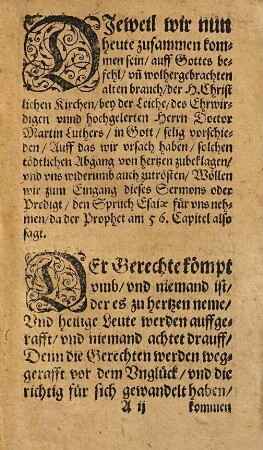 DIeweil wir nun
heute zusammen kom-
men sein/ auff Gottes be-
fehl/ vñ wolhergebrachten
alten brauch/ der H. Christ
lichen Kirchen/ bey der Leiche/ des Ehrwir-
digen vnnd hochgelerten Herrn Doctor
Martin Luthers/ in Gott/ selig vorschie-
den/ Auff das wir vrsach haben/ solchen
tödtlichen Abgang von hertzen zubeklagen/
vnd vns widerumb auch zutrösten/ Wöllen
wir zum Eingang dieses Sermons oder
Predigt/ den Spruch Esaiæ für vns neh-
men/ da der Prophet am 56. Capitel also
sagt.
DEr Gerechte kömpt
vmb/ vnd niemand ist/
der es zu hertzen neme/
Vnd heilige Leute werden auffge-
rafft/ vnd niemand achtet drauff/
Denn die Gerechten werden weg-
gerafft vor dem Vnglück/ vnd die
richtig für sich gewandelt haben/
A ij kommen